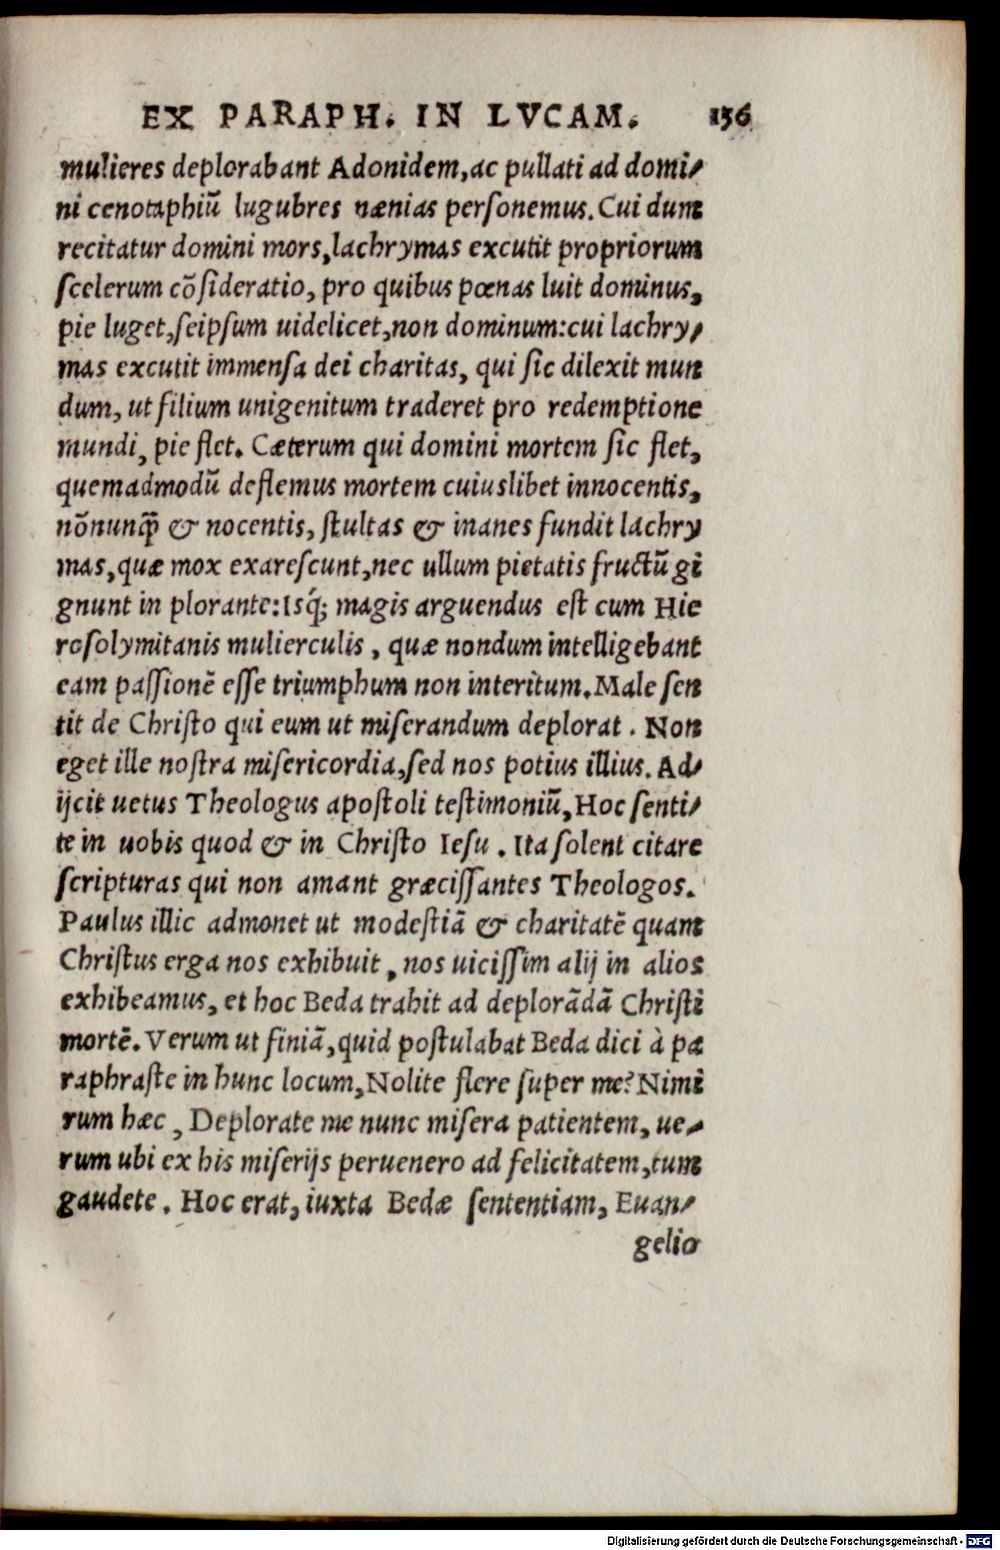 EX PARAPH. IN LVCAM. 156
mulieres deplorabant Adonidem, ac pullati ad domi-
ni cenotaphiũ lugubres nænias perſonemus. Cui dum
recitatur domini mors, lachrymas excutit propriorum
ſcelerum cõſideratio, pro quibus pœnas luit dominus,
pie luget, ſeipſum uidelicet, non dominum: cui lachry-
mas excutit immenſa dei charitas, qui ſic dilexit mun
dum, ut filium unigenitum traderet pro redemptione
mundi, pie flet. Cæterum qui domini mortem ſic flet,
quemadmodũ deflemus mortem cuiuslibet innocentis,
nõnunꝗ̃ & nocentis, ſtultas & inanes fundit lachry
mas, quæ mox exareſcunt, nec ullum pietatis fructũ gi
gnunt in plorante: Isq́; magis arguendus eſt cum Hie
roſolymitanis mulierculis, quæ nondum intelligebant
eam paſſionẽ eſſe triumphum non interitum. Male ſen
tit de Chriſto qui eum ut miſerandum deplorat. Non
eget ille noſtra miſericordia, ſed nos potius illius. Ad-
ijcit uetus Theologus apoſtoli teſtimoniũ, Hoc ſenti-
te in uobis quod & in Chriſto Ieſu. Ita ſolent citare
ſcripturas qui non amant græciſſantes Theologos.
Paulus illic admonet ut modeſtiã & charitatẽ quam
Chriſtus erga nos exhibuit, nos uiciſſim alij in alios
exhibeamus, et hoc Beda trahit ad deplorãdã Chriſti
mortẽ. Verum ut finiã, quid poſtulabat Beda dici à pa
raphraſte in hunc locum, Nolite flere ſuper me? Nimi
rum hæc, Deplorate me nunc miſera patientem, ue-
rum ubi ex his miſerijs peruenero ad felicitatem, tum
gaudete. Hoc erat, iuxta Bedæ ſententiam, Euan-
gelio
Digitalisierung gefördert durch die Deutsche Forschungsgemeinschaft - DFG